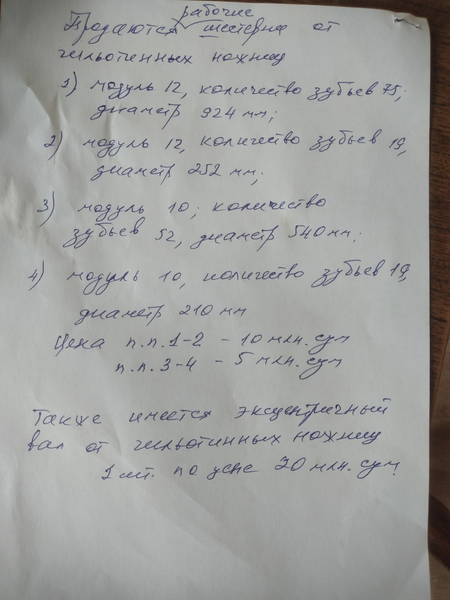 Продаются рабочие шестерни от
гильотинных ножниц
1) модуль 12, количество зубьев 75;
диаметр 924 мм;
2) модуль 12, количество зубьев 19,
диаметр 252 мм;
3) модуль 10; количество
зубьев 52, диаметр 540 мм;
4) модуль 10, количество зубьев 19,
диаметр 210 мм
Цена п.п. 1-2 - 10 млн. сум
п.п. 3-4 - 5 млн. сум
Также имеется эксцентричный
вал от гильотинных ножниц
1 шт. по цене 20 млн. сум